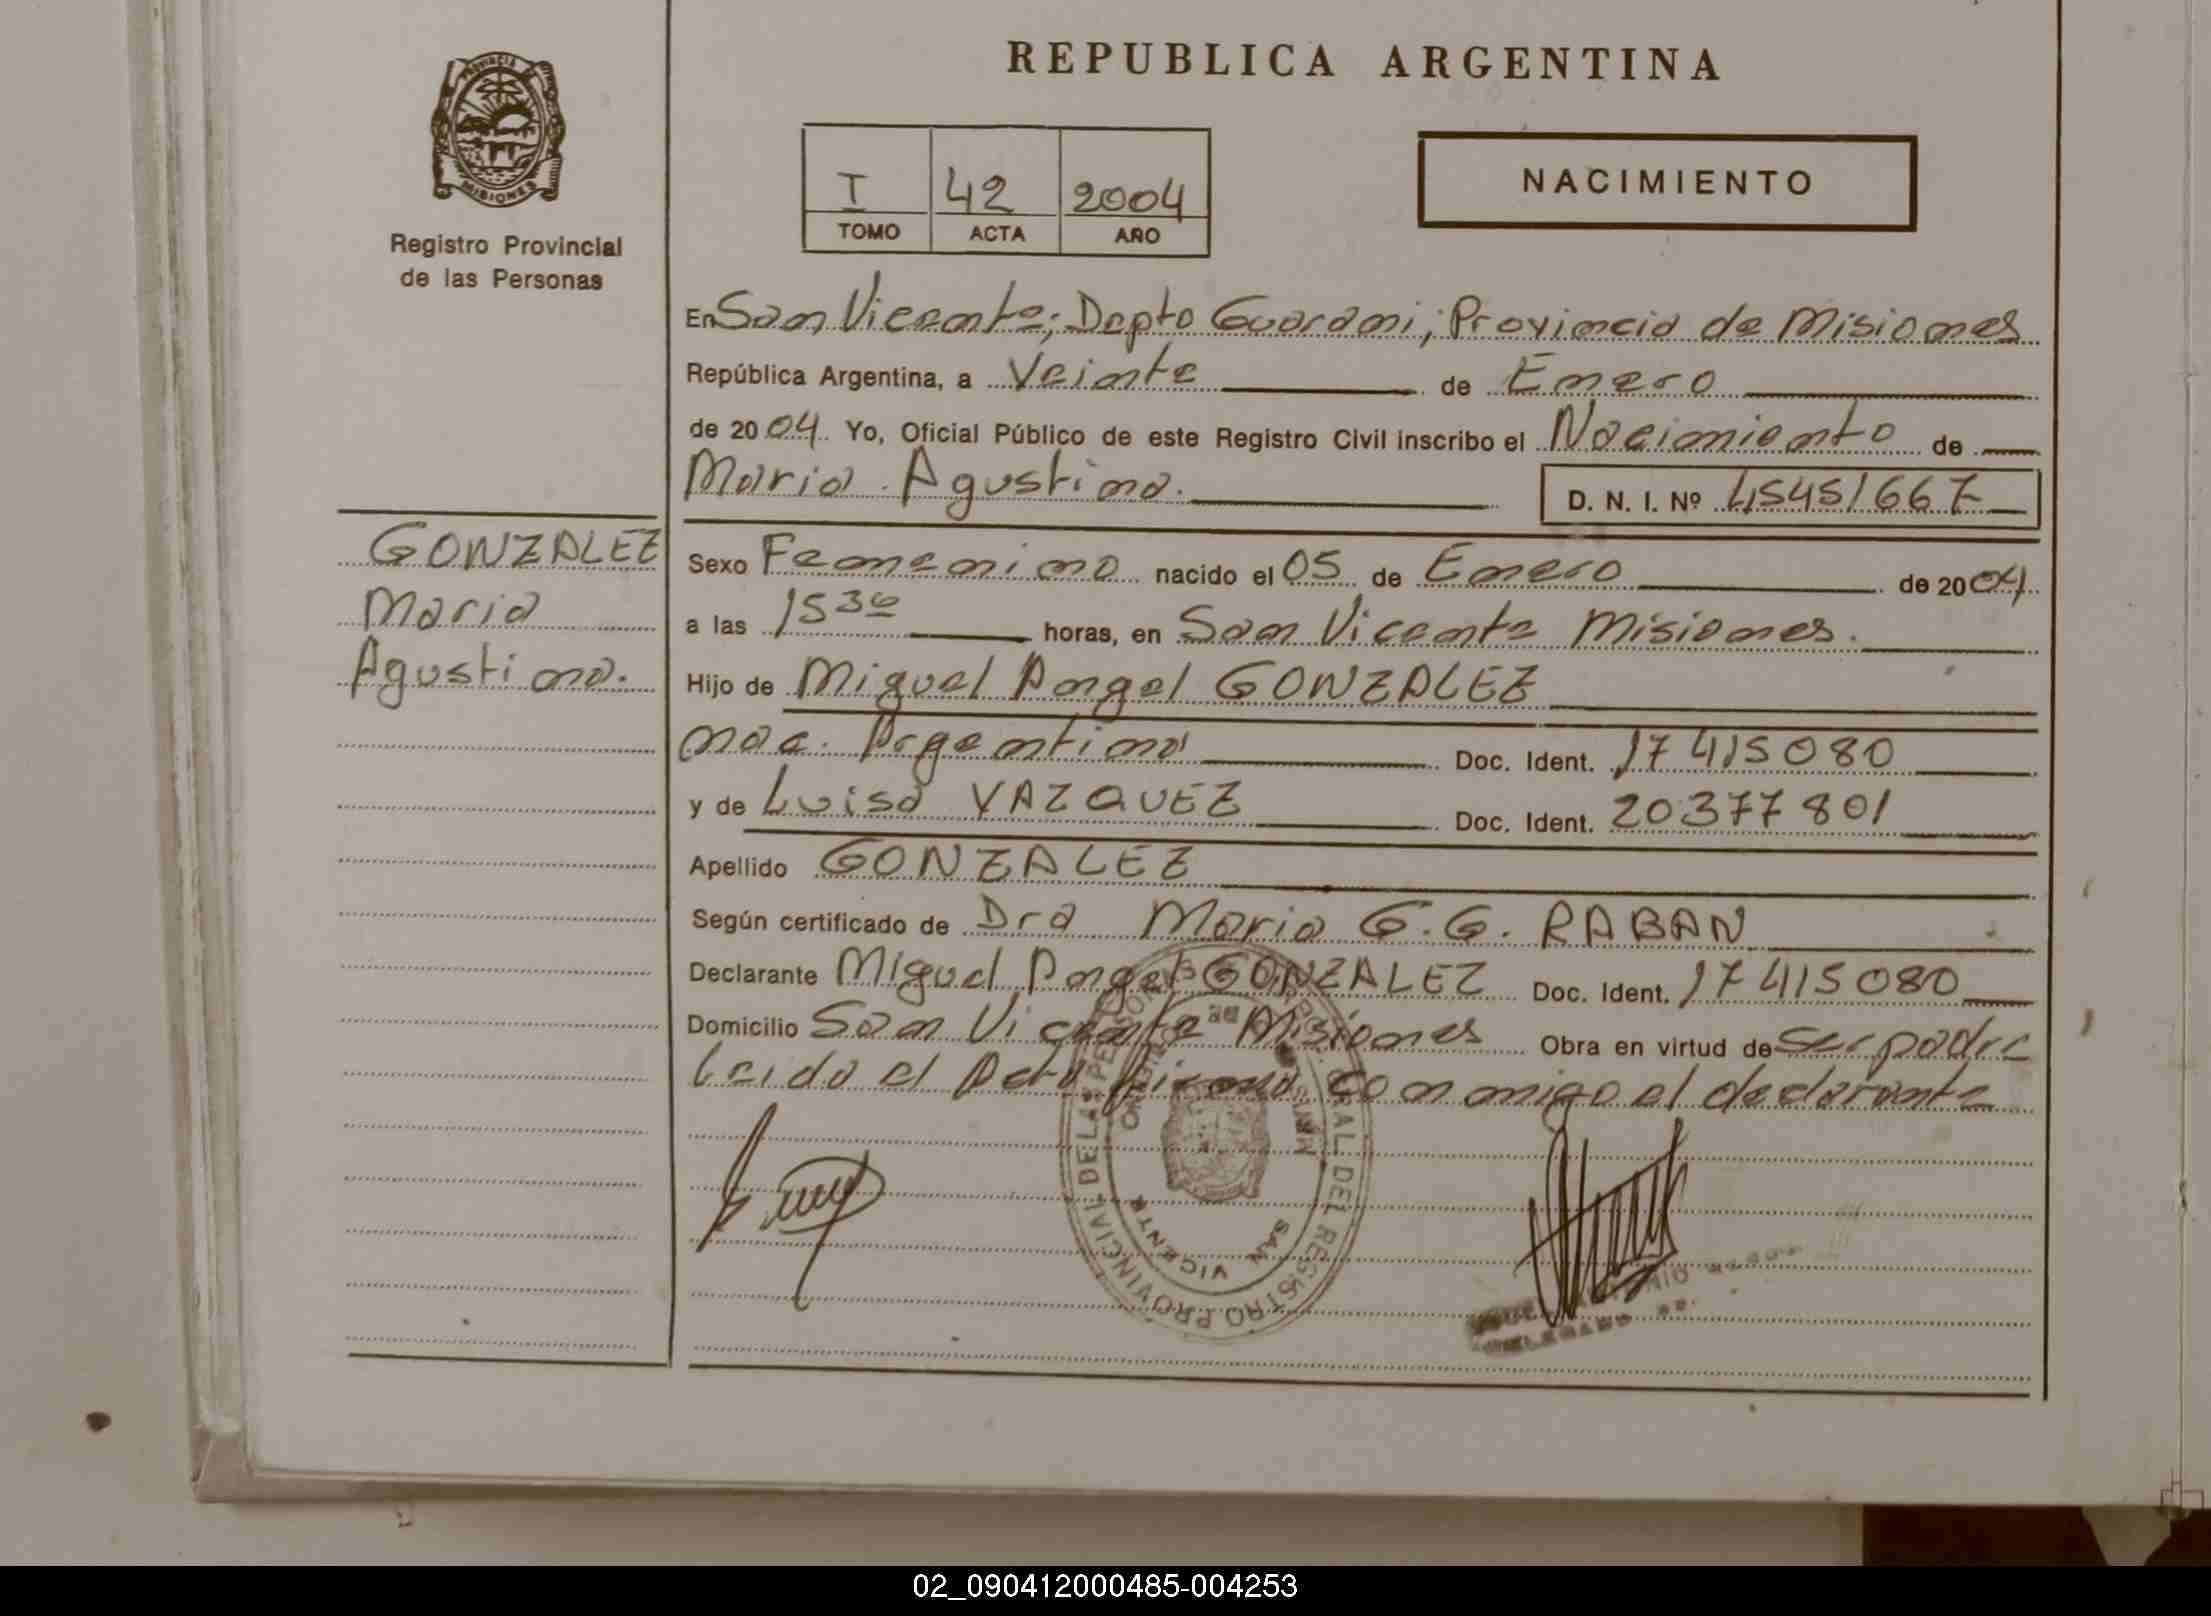 REPUBLICA ARGENTINA
PROVINCIA DE
MISIONES
Registro Provincial
de las Personas
I 42 2004
TOMO ACTA AÑO
NACIMIENTO
En San Vicente; Depto Guarani; Provincia de Misiones
República Argentina, a Veinte de Enero
de 2004 Yo, Oficial Público de este Registro Civil inscribo el Nacimiento de
Maria Agustina. D. N. I. Nº 45451667
GONZALEZ
Maria
Agustina.
Sexo Femenino nacido el 05 de Enero de 2004
a las 15 30 horas, en San Vicente Misiones.
Hijo de Miguel Angel GONZALEZ
nac. Argentina Doc. Ident. 17415080
y de Luisa VAZQUEZ Doc. Ident. 20377801
Apellido GONZALEZ
Según certificado de Dra Maria G. G. RABAN
Declarante Miguel Angel GONZALEZ Doc. Ident. 17415080
Domicilio San Vicente Misiones Obra en virtud de ser padre
Leido el Acta firma conmigo el declarante
REGISTRO PROVINCIAL DE LAS PERSONAS
SAN VICENTE
02_090412000485-004253